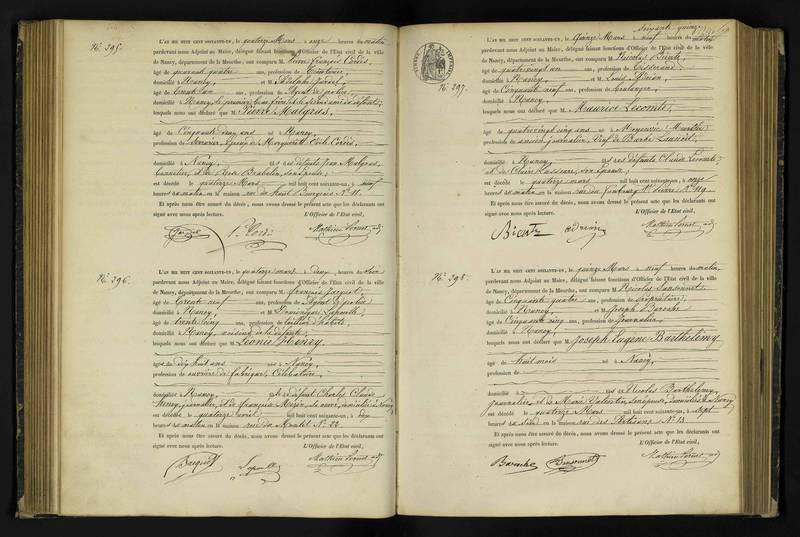 N.° 295.
L'AN MIL HUIT CENT SOIXANTE-UN, le quatorze Mars à onze heures du matin
pardevant nous Adjoint au Maire, délégué faisant fonctions d'Officier de l'Etat civil de la ville
de Nancy, département de la Meurthe, ont comparu M. François
âgé de quarante quatre ans, profession de
domicilié à Nancy, et M. Adolphe
âgé de trente un ans, profession de Agent de police
domicilié à Nancy, le premier beau frère et le second ami du défunt,
lesquels nous ont déclaré que M. Pierre Malgras,
âgé de Cinquante cinq ans né à Nancy,
profession de Epoux de Marguerite
domicilié à Nancy, fils des défunts Jean Malgras,
Tonnelier, et de Rose son épouse,
est décédé le quatorze Mars mil huit cent soixante-un, à neuf
heures du matin en la maison rue du Haut Bourgeois N.° 11.
Et après nous être assuré du décès, nous avons dressé le présent acte que les déclarants ont
signé avec nous après lecture. L'Officier de l'Etat civil,
N.° 296.
L'AN MIL HUIT CENT SOIXANTE-UN, le quatorze mars à deux heures du soir
pardevant nous Adjoint au Maire, délégué faisant fonctions d'Officier de l'Etat civil de la ville
de Nancy, département de la Meurthe, ont comparu M. François Jacquot,
âgé de trente neuf ans, profession de Agent de police
domicilié à Nancy, et M. Dominique Lapouille
âgé de trente cinq ans, profession de tailleur d'habits,
domicilié à Nancy, voisin de la défunte,
lesquels nous ont déclaré que M. Léonie Henry,
âgée de dix huit ans née à Nancy,
profession de ouvrière de fabrique, Célibataire,
domiciliée à Nancy, fille de défunt Charles Claude
Henry, journalier, et de Françoise sa veuve, domiciliée à Nancy,
est décédée le quatorze mil huit cent soixante-un, à dix
heures du matin en la maison rue du N.° 22.
Et après nous être assuré du décès, nous avons dressé le présent acte que les déclarants ont
signé avec nous après lecture. L'Officier de l'Etat civil,
Jacquot
Soixante quinze
N.° 297.
L'AN MIL HUIT CENT SOIXANTE-UN, le quinze Mars à neuf heures du matin
pardevant nous Adjoint au Maire, délégué faisant fonctions d'Officier de l'Etat civil de la ville
de Nancy, département de la Meurthe, ont comparu M. Nicolas
âgé de quatre vingt un ans, profession de Tisserand,
domicilié à Nancy, et M. Louis
âgé de Cinquante neuf ans, profession de boulanger,
domicilié à Nancy,
lesquels nous ont déclaré que M. Maurice Lecomte,
âgé de quatre vingt cinq ans né à Moyenvic (Meurthe)
profession de ancien journalier, Veuf de Barbe
domicilié à Nancy, fils des défunts Claude Lecomte
et de Claire son épouse,
est décédé le quatorze mars mil huit cent soixante-un, à onze
heures du matin en la maison rue du faubourg St. Pierre N.° 119.
Et après nous être assuré du décès, nous avons dressé le présent acte que les déclarants ont
signé avec nous après lecture. L'Officier de l'Etat civil,
N.° 298.
L'AN MIL HUIT CENT SOIXANTE-UN, le quinze Mars à neuf heures du matin,
pardevant nous Adjoint au Maire, délégué faisant fonctions d'Officier de l'Etat civil de la ville
de Nancy, département de la Meurthe, ont comparu M. Nicolas
âgé de Cinquante quatre ans, profession de propriétaire,
domicilié à Nancy, et M. Joseph
âgé de Cinquante cinq ans, profession de Journalier,
domicilié à Nancy,
lesquels nous ont déclaré que M. Joseph Eugène Barthélemy
âgé de Huit mois né à Nancy,
profession de
domicilié à fils de Nicolas Barthélemy,
journalier, et de Marie Valentin son épouse, domiciliés à Nancy
est décédé le quatorze Mars mil huit cent soixante-un, à sept
heures du soir en la maison rue des Artisans N.° 13
Et après nous être assuré du décès, nous avons dressé le présent acte que les déclarants ont
signé avec nous après lecture. L'Officier de l'Etat civil,